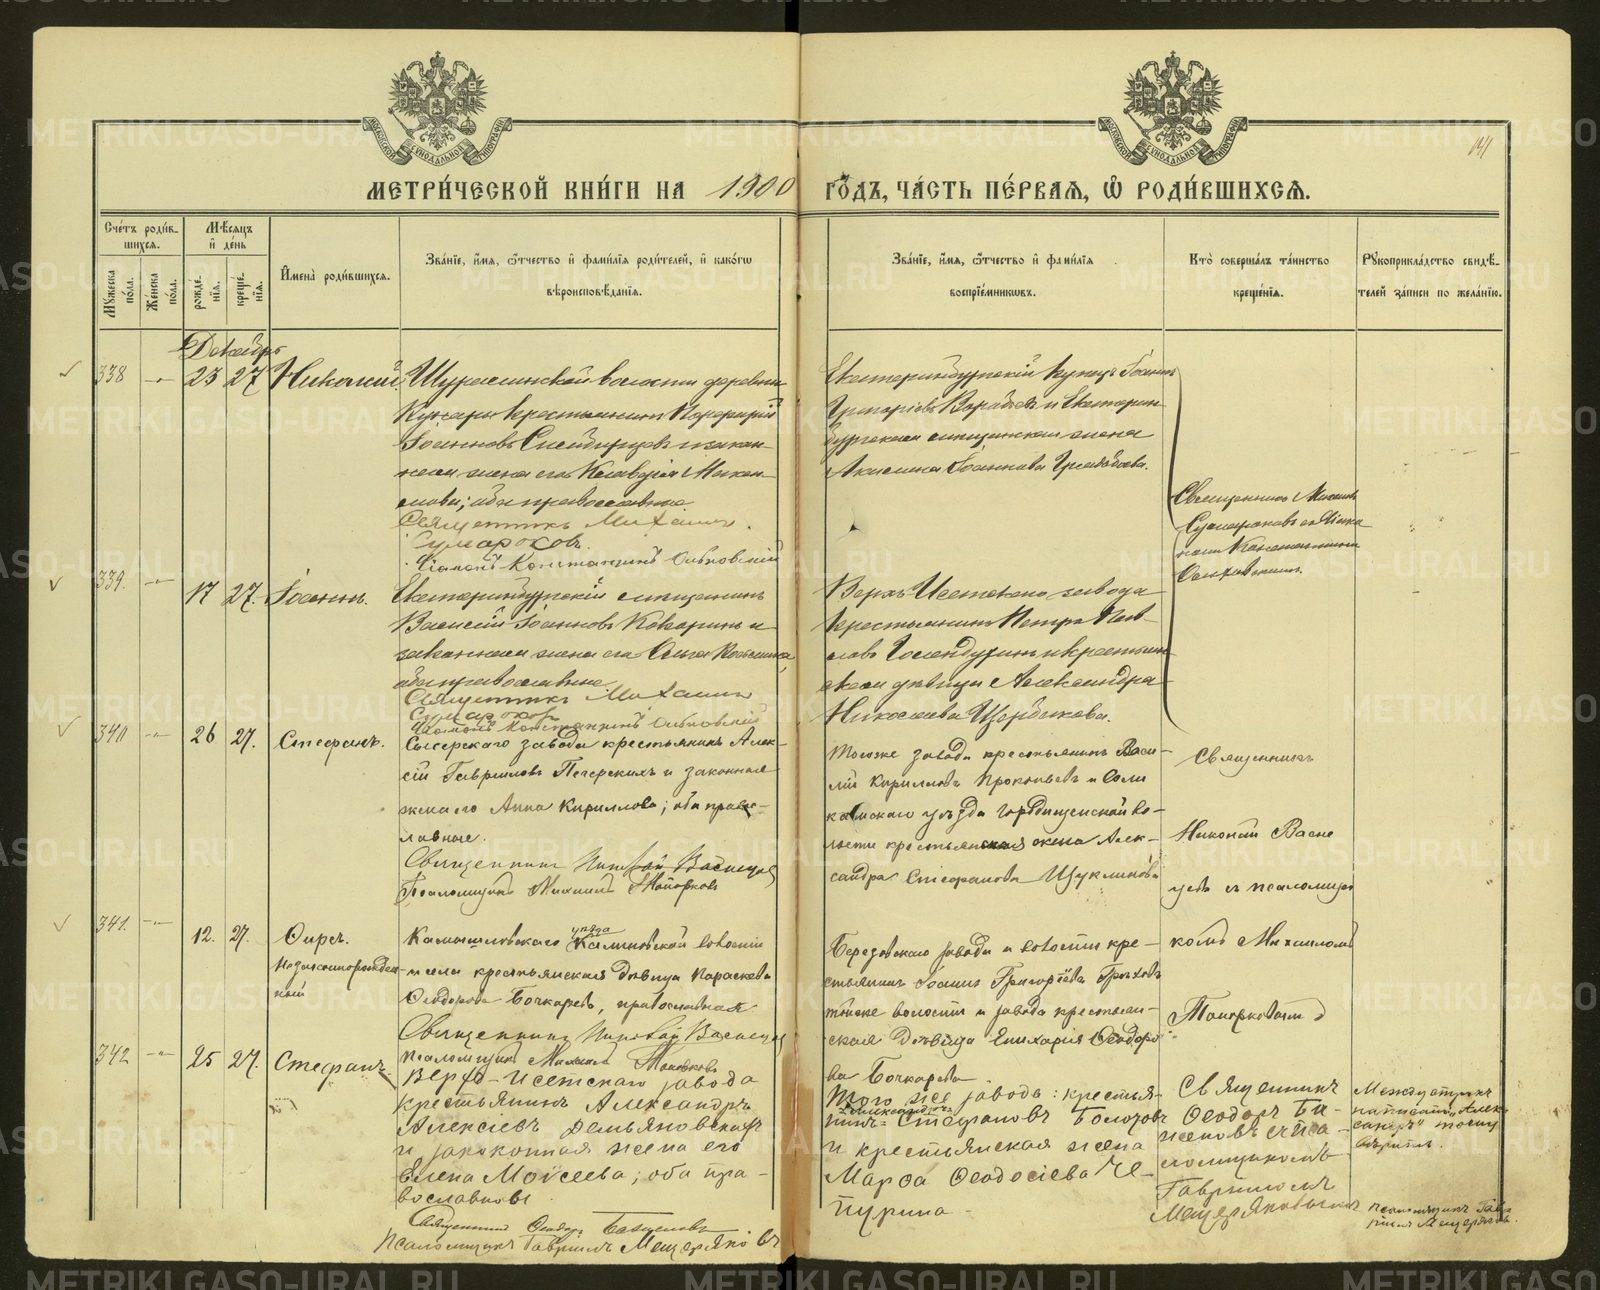 МОСКОВСКОЙ СѴНОДАЛЬНОЙ ТИПОГРАФІИ
МОСКОВСКОЙ СѴНОДАЛЬНОЙ ТИПОГРАФІИ
141
МЕТРИ́ЧЕСКОЙ КНИ́ГИ НА 1900 ГО́ДЪ, ЧА́СТЬ ПЕ́РВАѦ, Ѡ҆ РОДИ́ВШИХСѦ.
Сче́тъ роди́в-
шихсѧ.
Мѣ́сѧцъ
и҆ де́нь
Мꙋ́жеска
по́ла.
Же́нска
по́ла.
рожде́-
нїѧ.
креще́-
нїѧ.
И҆мена̀ роди́вшихсѧ.
Зва́нїе, и҆́мѧ, ѻ҆́тчество и҆ фами́лїѧ роди́телей, и҆ како́гѡ
вѣроисповѣ́данїѧ.
Зва́нїе, и҆́мѧ, ѻ҆́тчество и҆ фами́лїѧ
воспрїе́мникѡвъ.
Кто̀ соверша́лъ та́инство
креще́нїѧ.
Рꙋкоприкла́дство свидѣ́-
телей за́писи по жела́нїю.
Декабрь
338 23 27 Николай
волости деревни
крестьянинъ Порфирій
Іоанновъ и закон-
ная жена его Клавдія
оба православные.
Священникъ Михаилъ
Сумароковъ.
Діаконъ Константинъ
Екатеринбургскій купецъ Іоаннъ
Григорьевъ и Екатерин-
бургская мѣщанская жена
Акилина Іоаннова
Священникъ Михаилъ
Сумароковъ съ діако-
номъ Константиномъ
339. 17 27. Іоаннъ.
Екатеринбургскій мѣщанинъ
Василій Іоанновъ и
законная жена его Ольга
оба православные.
Священникъ Михаилъ
Сумароковъ
Діаконъ Константинъ
Верхъ-Исетскаго завода
крестьянинъ Петръ Пав-
ловъ и крестьян-
ская дѣвица Александра
Николаева Щербакова.
340 26 27. Стефанъ.
Сысерскаго завода крестьянинъ Алек-
сій Гавриловъ Печерскихъ и законная
жена его Анна Кириллова; оба право-
славные.
Священникъ Николай Васнецов
Псаломщикъ Михаилъ Топорковъ
Тогоже завода крестьянинъ Васи-
лій Кирилловъ Прокопьевъ и Соли
камскаго уѣзда Городищенской во-
лости крестьянская жена Алек-
сандра Стефанова Щуклина
Священникъ
Николай Васне
цовъ съ псаломщи
комъ Михаиломъ
Топорковымъ
341. 12. 27. Ѳирсъ.
Незаконнорожден-
ный
Камышловскаго уѣзда Калиновской волости
и села крестьянская дѣвица Параскева
Ѳеодорова Бочкарева, православная
Священникъ Николай Васнецов
Псаломщикъ Михаилъ Топорковъ
Березовскаго завода и волости кре-
стьянинъ Іоаннъ Григорьевъ
тойже волости и завода крестьян-
ская дѣвица Епихарія Ѳеодоро
ва Бочкарева
342 25 27. Стефанъ
Верхъ-Исетскаго завода
крестьянинъ Александръ
Алексіевъ Демьяновскихъ
и законная жена его
Елена Моисеева; оба пра-
вославные.
Священникъ Ѳеодоръ
Псаломщикъ Гавріилъ Мещеряковъ
Того же завода: крестья-
Александръ
нинъ Стефановъ Болотовъ
и крестьянская жена
Марѳа Ѳеодосіева Че-
пурина.
Священникъ
Ѳеодоръ
съ пса-
ломщикомъ
Гавріиломъ
Мещеряковымъ
Между строкъ
написано „Алек-
сандръ“ тому
вѣрить.
Псаломщикъ Гав-
ріилъ Мещеряковъ.
METRIKI.GASO-URAL.RU